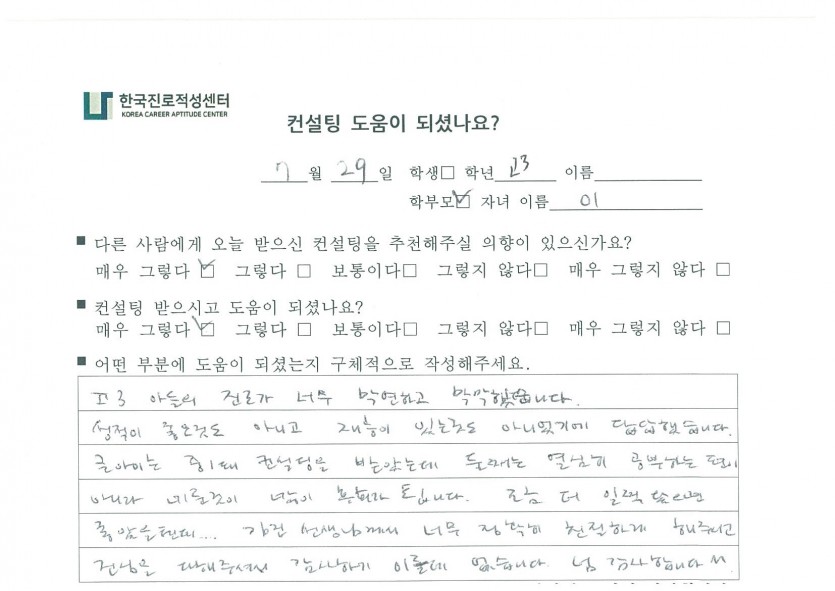 한국진로적성센터
KOREA CAREER APTITUDE CENTER
컨설팅 도움이 되셨나요?
7월 29일 학생□ 학년 고3 이름
학부모☑ 자녀 이름 이
■ 다른 사람에게 오늘 받으신 컨설팅을 추천해주실 의향이 있으신가요?
매우 그렇다 ☑ 그렇다 □ 보통이다□ 그렇지 않다□ 매우 그렇지 않다 □
■ 컨설팅 받으시고 도움이 되셨나요?
매우 그렇다☑ 그렇다 □ 보통이다□ 그렇지 않다□ 매우 그렇지 않다 □
■ 어떤 부분에 도움이 되셨는지 구체적으로 작성해주세요.
고3 아들의 진로가 너무 막연하고 막막했습니다.
성적이 좋은것도 아니고 재능이 있는것도 아니었기에 답답했습니다.
큰아이는 중1때 컨설팅을 받았는데 둘째는 열심히 공부하는 편이
아니라 미룬것이 너무 후회가 됩니다. 조금 더 일찍 왔으면
좋았을텐데... 선생님께서 너무 정확히 친절하게 해주시고
최선을 다해주셔서 감사하기 이를데 없습니다. 넘 감사합니다